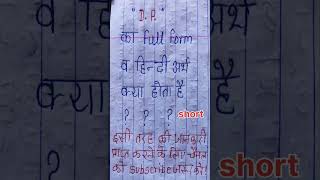 "D.P."
का Full Form
व हिन्दी अर्थ
क्या होता है
? ? ?
short
इसी तरह की जानकारी
प्राप्त करने के लिए चैनल
को Subscribe करें